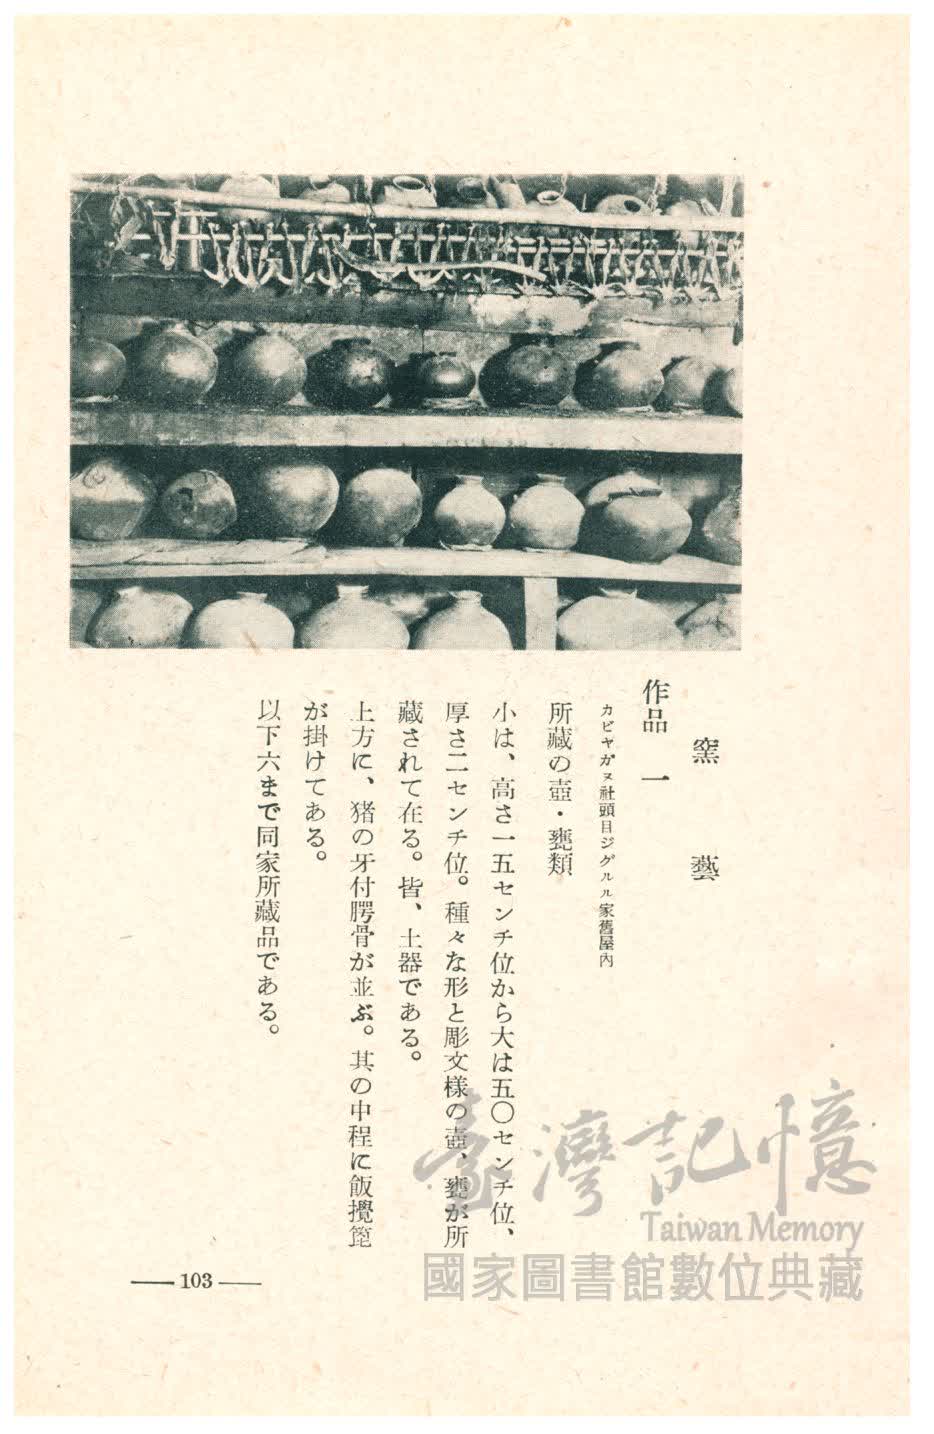 窯藝
作品一
カビヤガヌ社頭目ジグルル家舊屋内
所藏の壺・甕類
小は、高さ一五センチ位から大は五〇センチ位、
厚さ二センチ位。種々な形と彫文様の壺、甕が所
藏されて在る。皆、土器である。
上方に、猪の牙付腭骨が並ぶ。其の中程に飯攪箆
が掛けてある。
以下六まで同家所藏品である。
103
臺灣記憶
Taiwan Memory
國家圖書館數位典藏